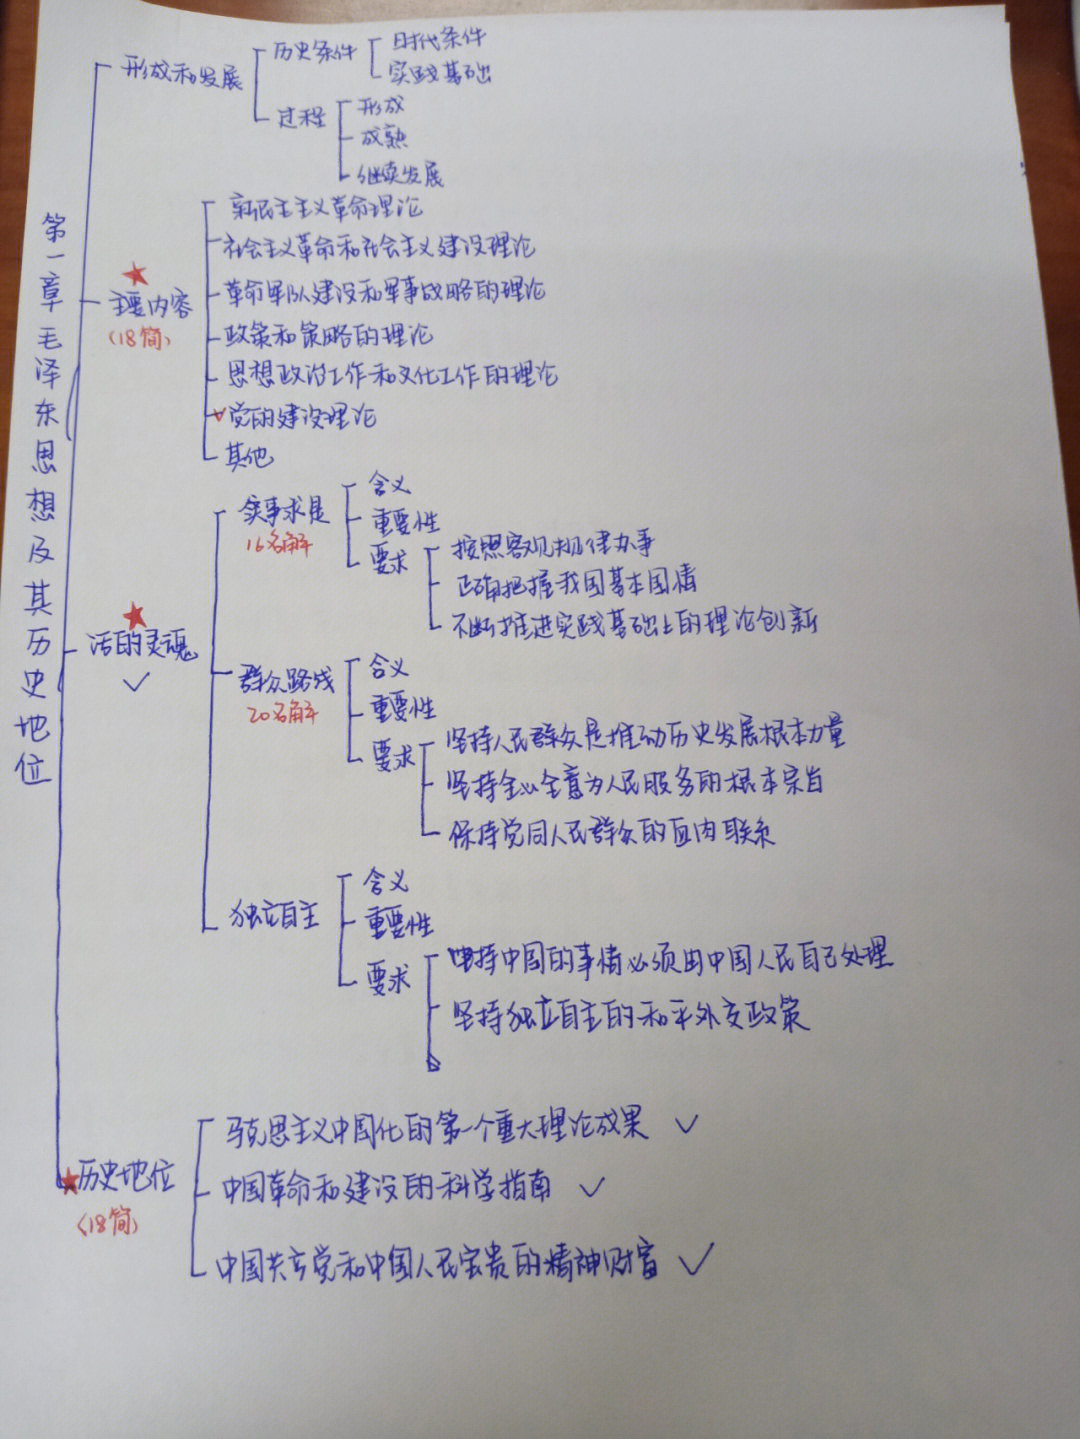 第一章毛泽东思想及其历史地位
形成和发展
历史条件
时代条件
实践基础
过程
形成
成熟
继续发展
主要内容
(18简)
新民主主义革命理论
社会主义革命和社会主义建设理论
革命军队建设和军事战略的理论
政策和策略的理论
思想政治工作和文化工作的理论
党的建设理论
其他
活的灵魂
实事求是
16名解
含义
重要性
要求
按照客观规律办事
正确把握我国基本国情
不断推进实践基础上的理论创新
群众路线
20名解
含义
重要性
要求
坚持人民群众是推动历史发展根本力量
坚持全心全意为人民服务的根本宗旨
保持党同人民群众的血肉联系
独立自主
含义
重要性
要求
坚持中国的事情必须由中国人民自己处理
坚持独立自主的和平外交政策
历史地位
(18简)
马克思主义中国化的第一个重大理论成果
中国革命和建设的科学指南
中国共产党和中国人民宝贵的精神财富